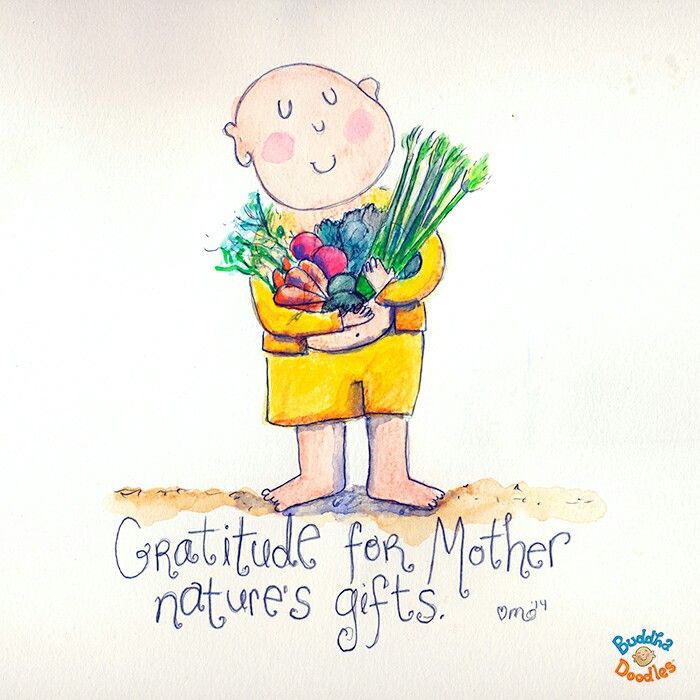 Gratitude for Mother
nature's gifts.
♡mo'14
Buddha
Doodles